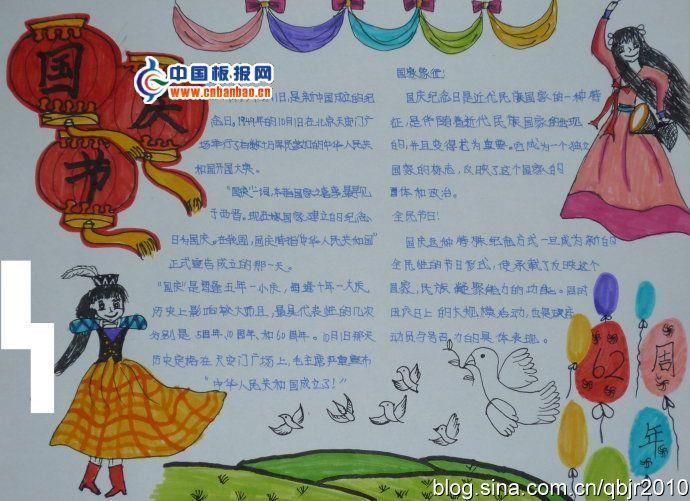 国
庆
节
中国板报网
www.cnbanbao.cn
日,是新中国成立的纪
念日。1949年的10月1日在北京天安门广
场举行了
的中华人民共
和国开国大典。
"国庆"一词,本指国家之喜事,最早见
于西晋。现在
国家建立的日纪念
日为国庆。在我国,国庆特指"中华人民共和国"
正式宣告成立的那一天。
"国庆"是逢五年一小庆,每逢十年一大庆。
历史上影响较大而且,最具代表性的几次
分别是 5周年、10周年、和60周年。10月1日那天
历史定格在天安门广场上,毛主席严重宣布
"中华人民共和国成立了!"
国家象征:
国庆纪念日是近代民族国家的一种特
征,是伴随着近代民族国家的出现
的,并且变得尤为重要。它成为一个独立
国家的标志,反映了这个国家的
国体和政治。
全民节日:
国庆这种特殊纪念方式一旦成为新的
全民性的节日形式,便承载了反映这个
国家,民族凝聚能力的功能。同时
国庆日上的大规模活动,也是政府
动员与号召力的具体表现。
62
周
年
blog.sina.com.cn/qbjr2010